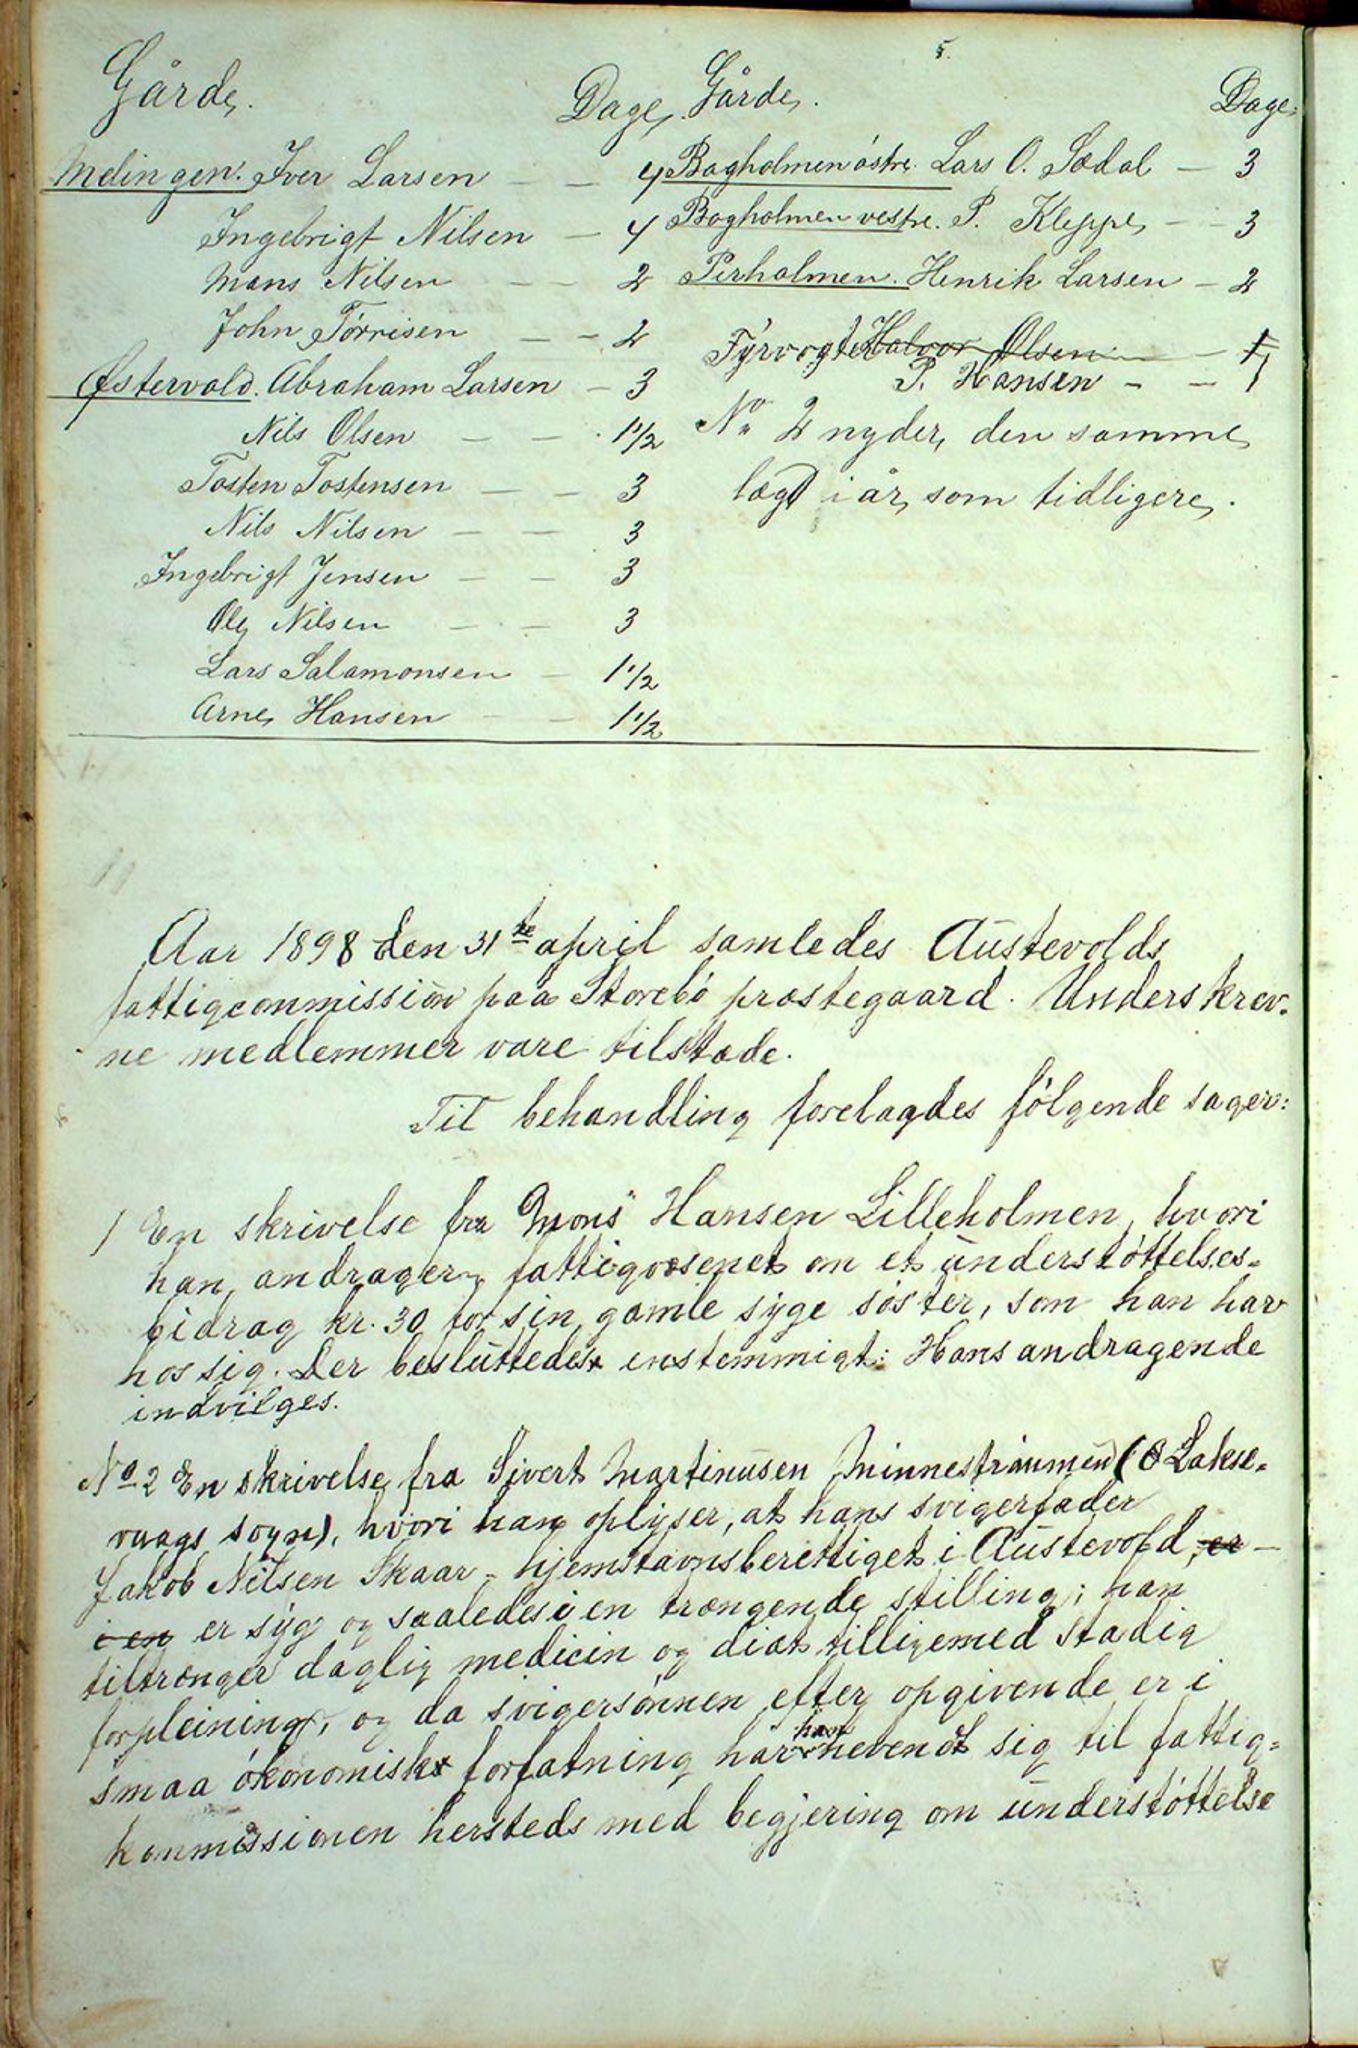 Gårde. Dage,
Melingen. Iver Larsen — — 4
Ingebrigt Nilsen — 4
Mons Nilsen — — 2
John Törrisen — — 2
Östervold. Abraham Larsen — 3
Nils Olsen — — 1 1/2
Tosten Tostensen — — 3
Nils Nilsen — — 3
Ingebrigt Jensen — — 3
Ole Nilsen — — 3
Lars Salamonsen — 1 1/2
Arne Hansen — — 1 1/2
Gårde. Dage.
Bagholmen östre. Lars O. Sædal — 3
Bagholmen vestre. P. Kleppe — — 3
Perholmen. Henrik Larsen — 2
Fyrvogter Halvor Olsen — — 1
P. Hansen — — 1
No 2 nyder den samme
lægd i år som tidligere.
Aar 1898 den 31te april samledes Austevolds
fattigcommission paa Storebö præstegaard. Underskrev-
ne medlemmer vare tilstæde.
Til behandling forelagdes fölgende sager:
1 En skrivelse fra Mons Hansen Lilleholmen, hvori
han andrager fattigvæsenet om et understöttelses-
bidrag kr. 30 for sin gamle syge söster, som han har
hos sig. Der besluttedes enstemmigt: Hans andragende
indvilges.
No 2 En skrivelse fra Sivert Martinusen Minnestraumen (Lakse-
vaags sogn), hvori han oplyser, at hans svigerfader
Jakob Nilsen Skaar - hjemstavnsberettiget i Austevold, er —
i en er syg og saaledes i en trængende stilling; han
tiltrænger daglig medicin og diæt tilligemed stadig
forpleining, og da svigersönnen efter opgivende er i
smaa ökonomisk forfatning har han henvendt sig til fattig-
kommissionen hersteds med begjering om understöttelse